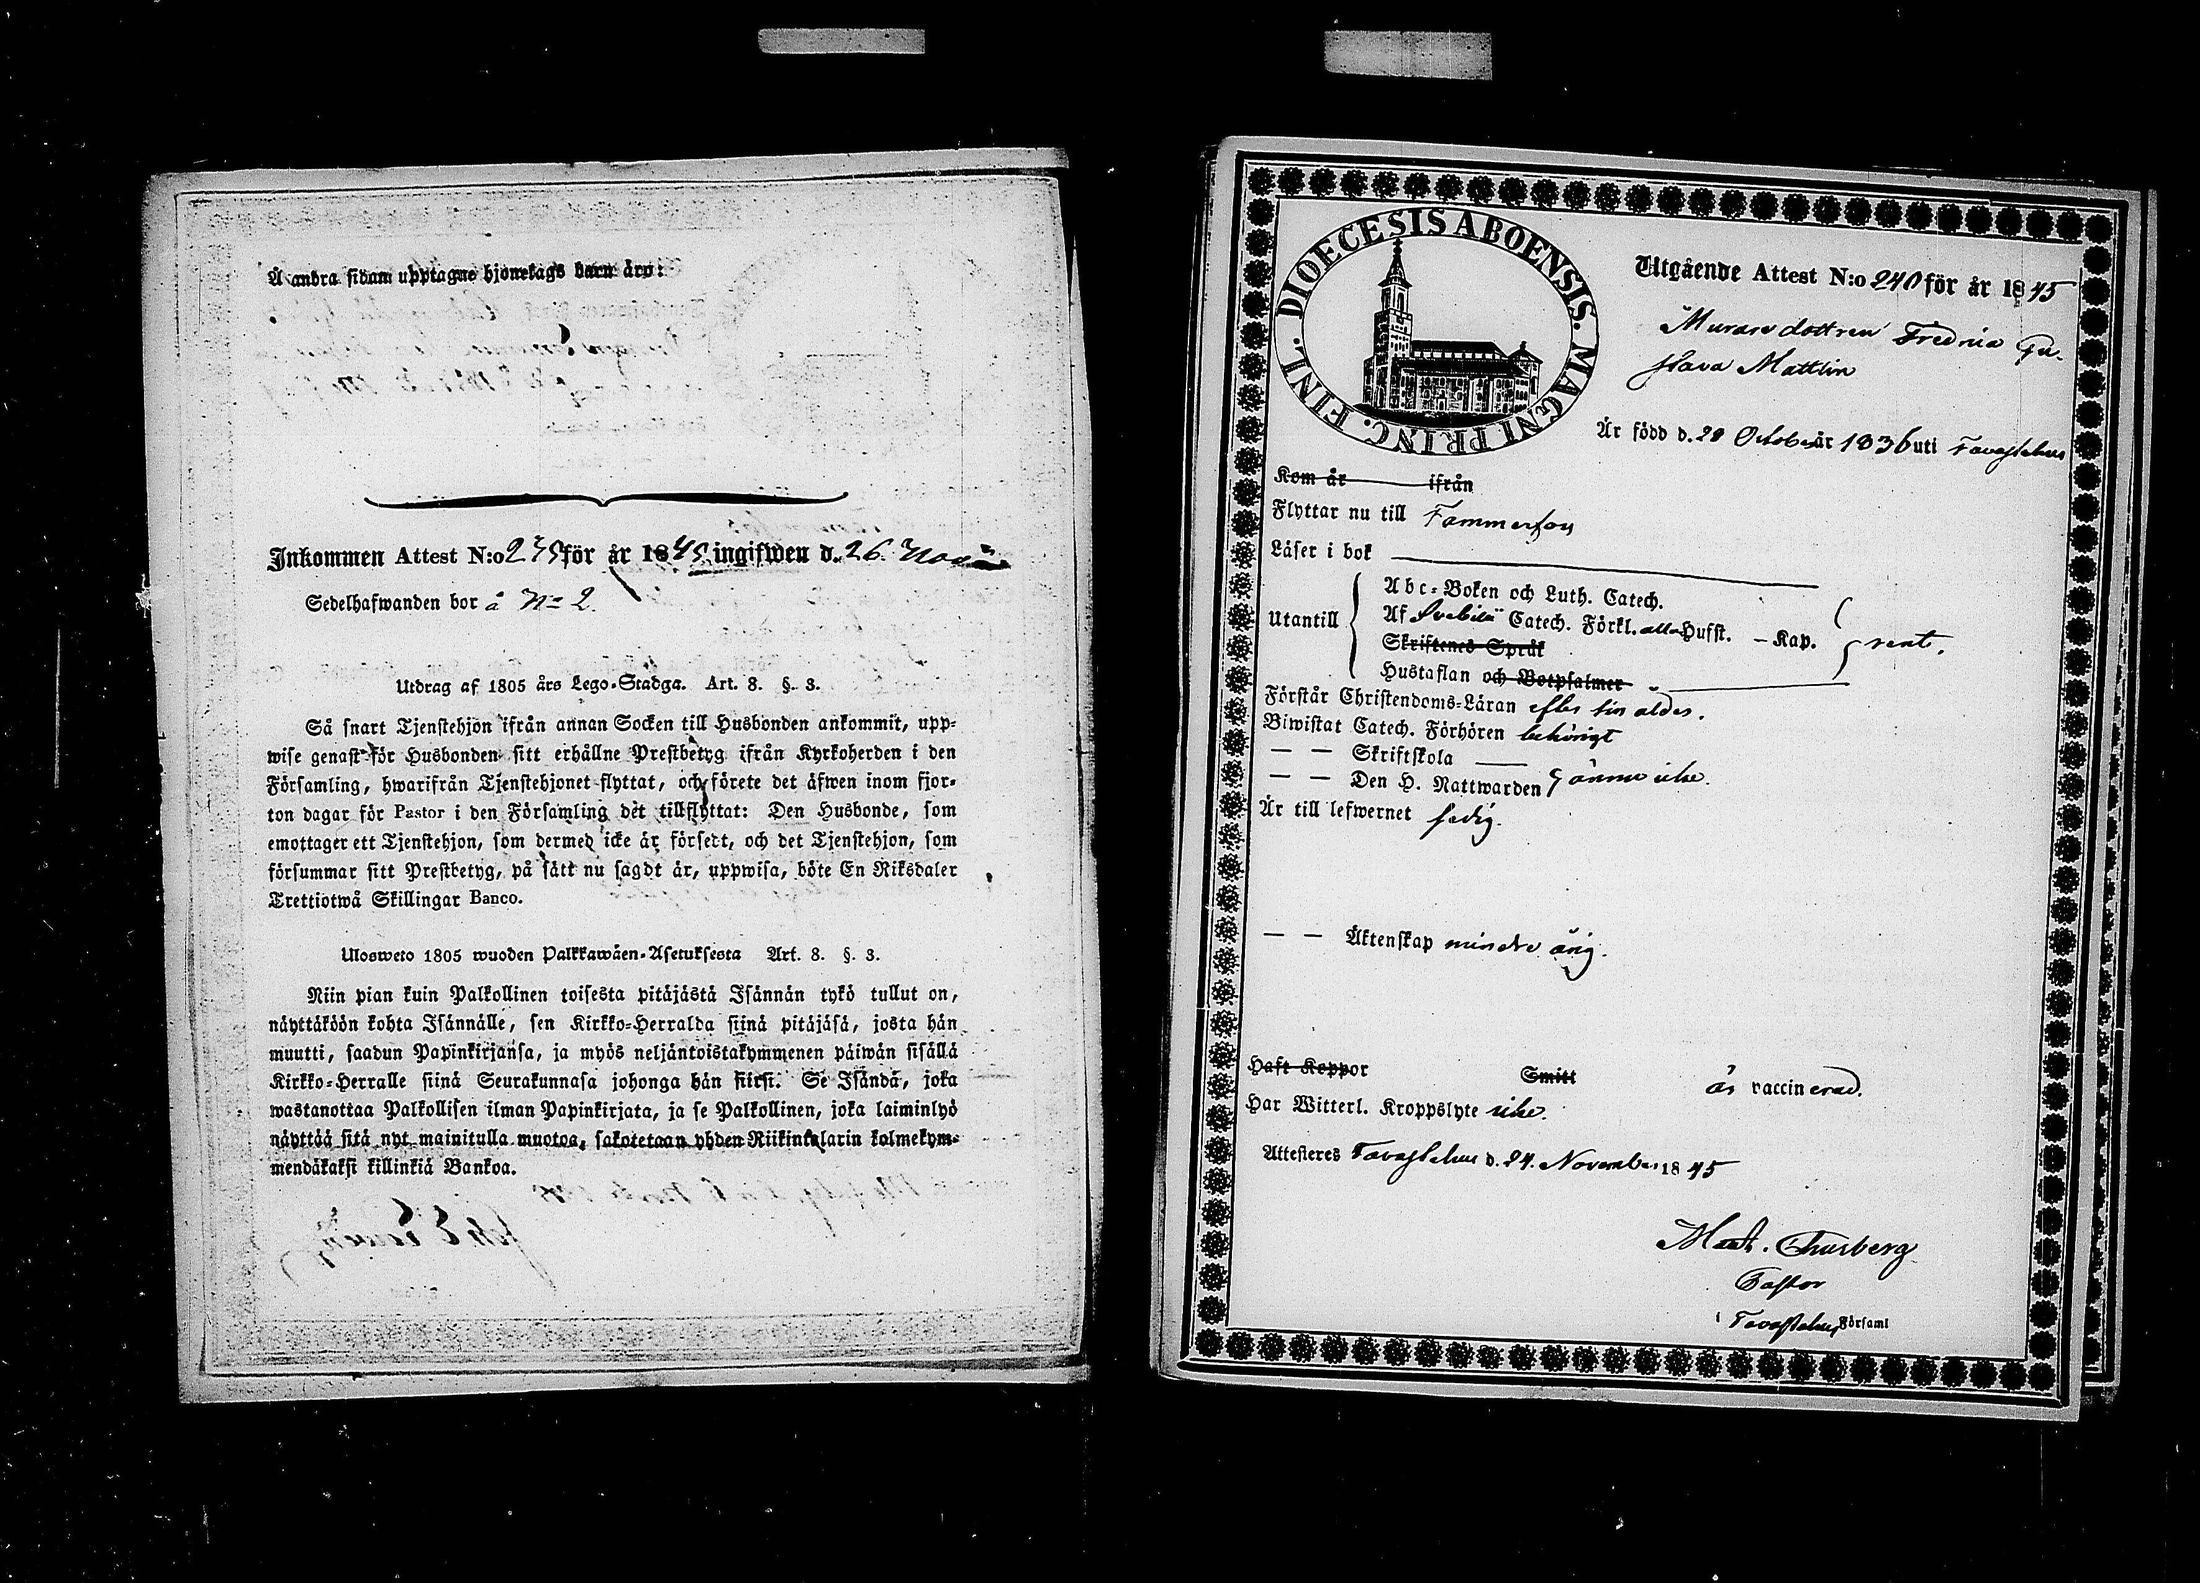 Å andra sidan upptagne hjonelags barn äro:
Inkommen Attest N:o 235 för år 1845, ingifwen d. 26. Nov.
Sedelhafwanden bor å No 2.
Utdrag af 1805 års Lego-Stadga. Art. 8. §. 3.
Så snart Tjenstehjon ifrån annan Socken till Husbonden ankommit, upp-
wise genast för Husbonden sitt erhållne Prestbetyg ifrån Kyrkoherden i den
Församling, hwarifrån Tjenstehjonet flyttat, och förete det äfwen inom fjor-
ton dagar för Pastor i den Församling det tillflyttat: Den Husbonde, som
emottager ett Tjenstehjon, som dermed icke är försedt, och det Tjenstehjon, som
försummar sitt Prestbetyg, på sätt nu sagdt är, uppwisa, böte En Riksdaler
Trettiotwå Skillingar Banco.
Ulosweto 1805 wuoden Palkkawäen-Asetuksesta Art. 8. §. 3.
Niin pian kuin Palkollinen toisesta pitäjästä Isännän tykö tullut on,
näyttäköön kohta Isännälle, sen Kirkko-Herralda siinä pitäjäsä, josta hän
muutti, saadun Papinkirjansa, ja myös neljäntoistakymmenen päiwän sisällä
Kirkko-Herralle siinä Seurakunnasa johonga hän siirsi. Se Isändä, joka
wastanottaa Palkollisen ilman Papinkirjata, ja se Palkollinen, joka laiminlyö
näyttää sitä nyt mainitulla muotoa, sakotetaan yhden Riikintalarin kolmekym-
mendäkaksi killinkiä Bankoa.
DIOECESIS ABOENSIS. MAGNI PRINC. FINL.
Utgående Attest N:o 240 för år 1845
Muraredottren Fredrica Gu-
stava Mattlin
Är född d. 28 October år 1836 uti Tavastehus
Kom år ifrån
Flyttar nu till Tammerfors
Läser i bok
Utantill
Abc-Boken och Luth. Catech.
Af Svebilii Catech. Förkl. alla Hufst. — Kap.
Skriftenes Språk
Hustaflan och Botpsalmer
rent.
Förstår Christendoms-Läran efter sin ålder.
Biwistat Catech. Förhören behörigt
— — Skriftskola
— — Den H. Nattwarden ännu icke.
Är till lefwernet sedig.
— — Äktenskap minderårig.
Haft Koppor Smitt är vaccinerad.
Har Witterl. Kroppslyte icke.
Attesteres Tavastehus d. 24. November 1845
Mart. Thusberg
Pastor
i Tavastehus Församl